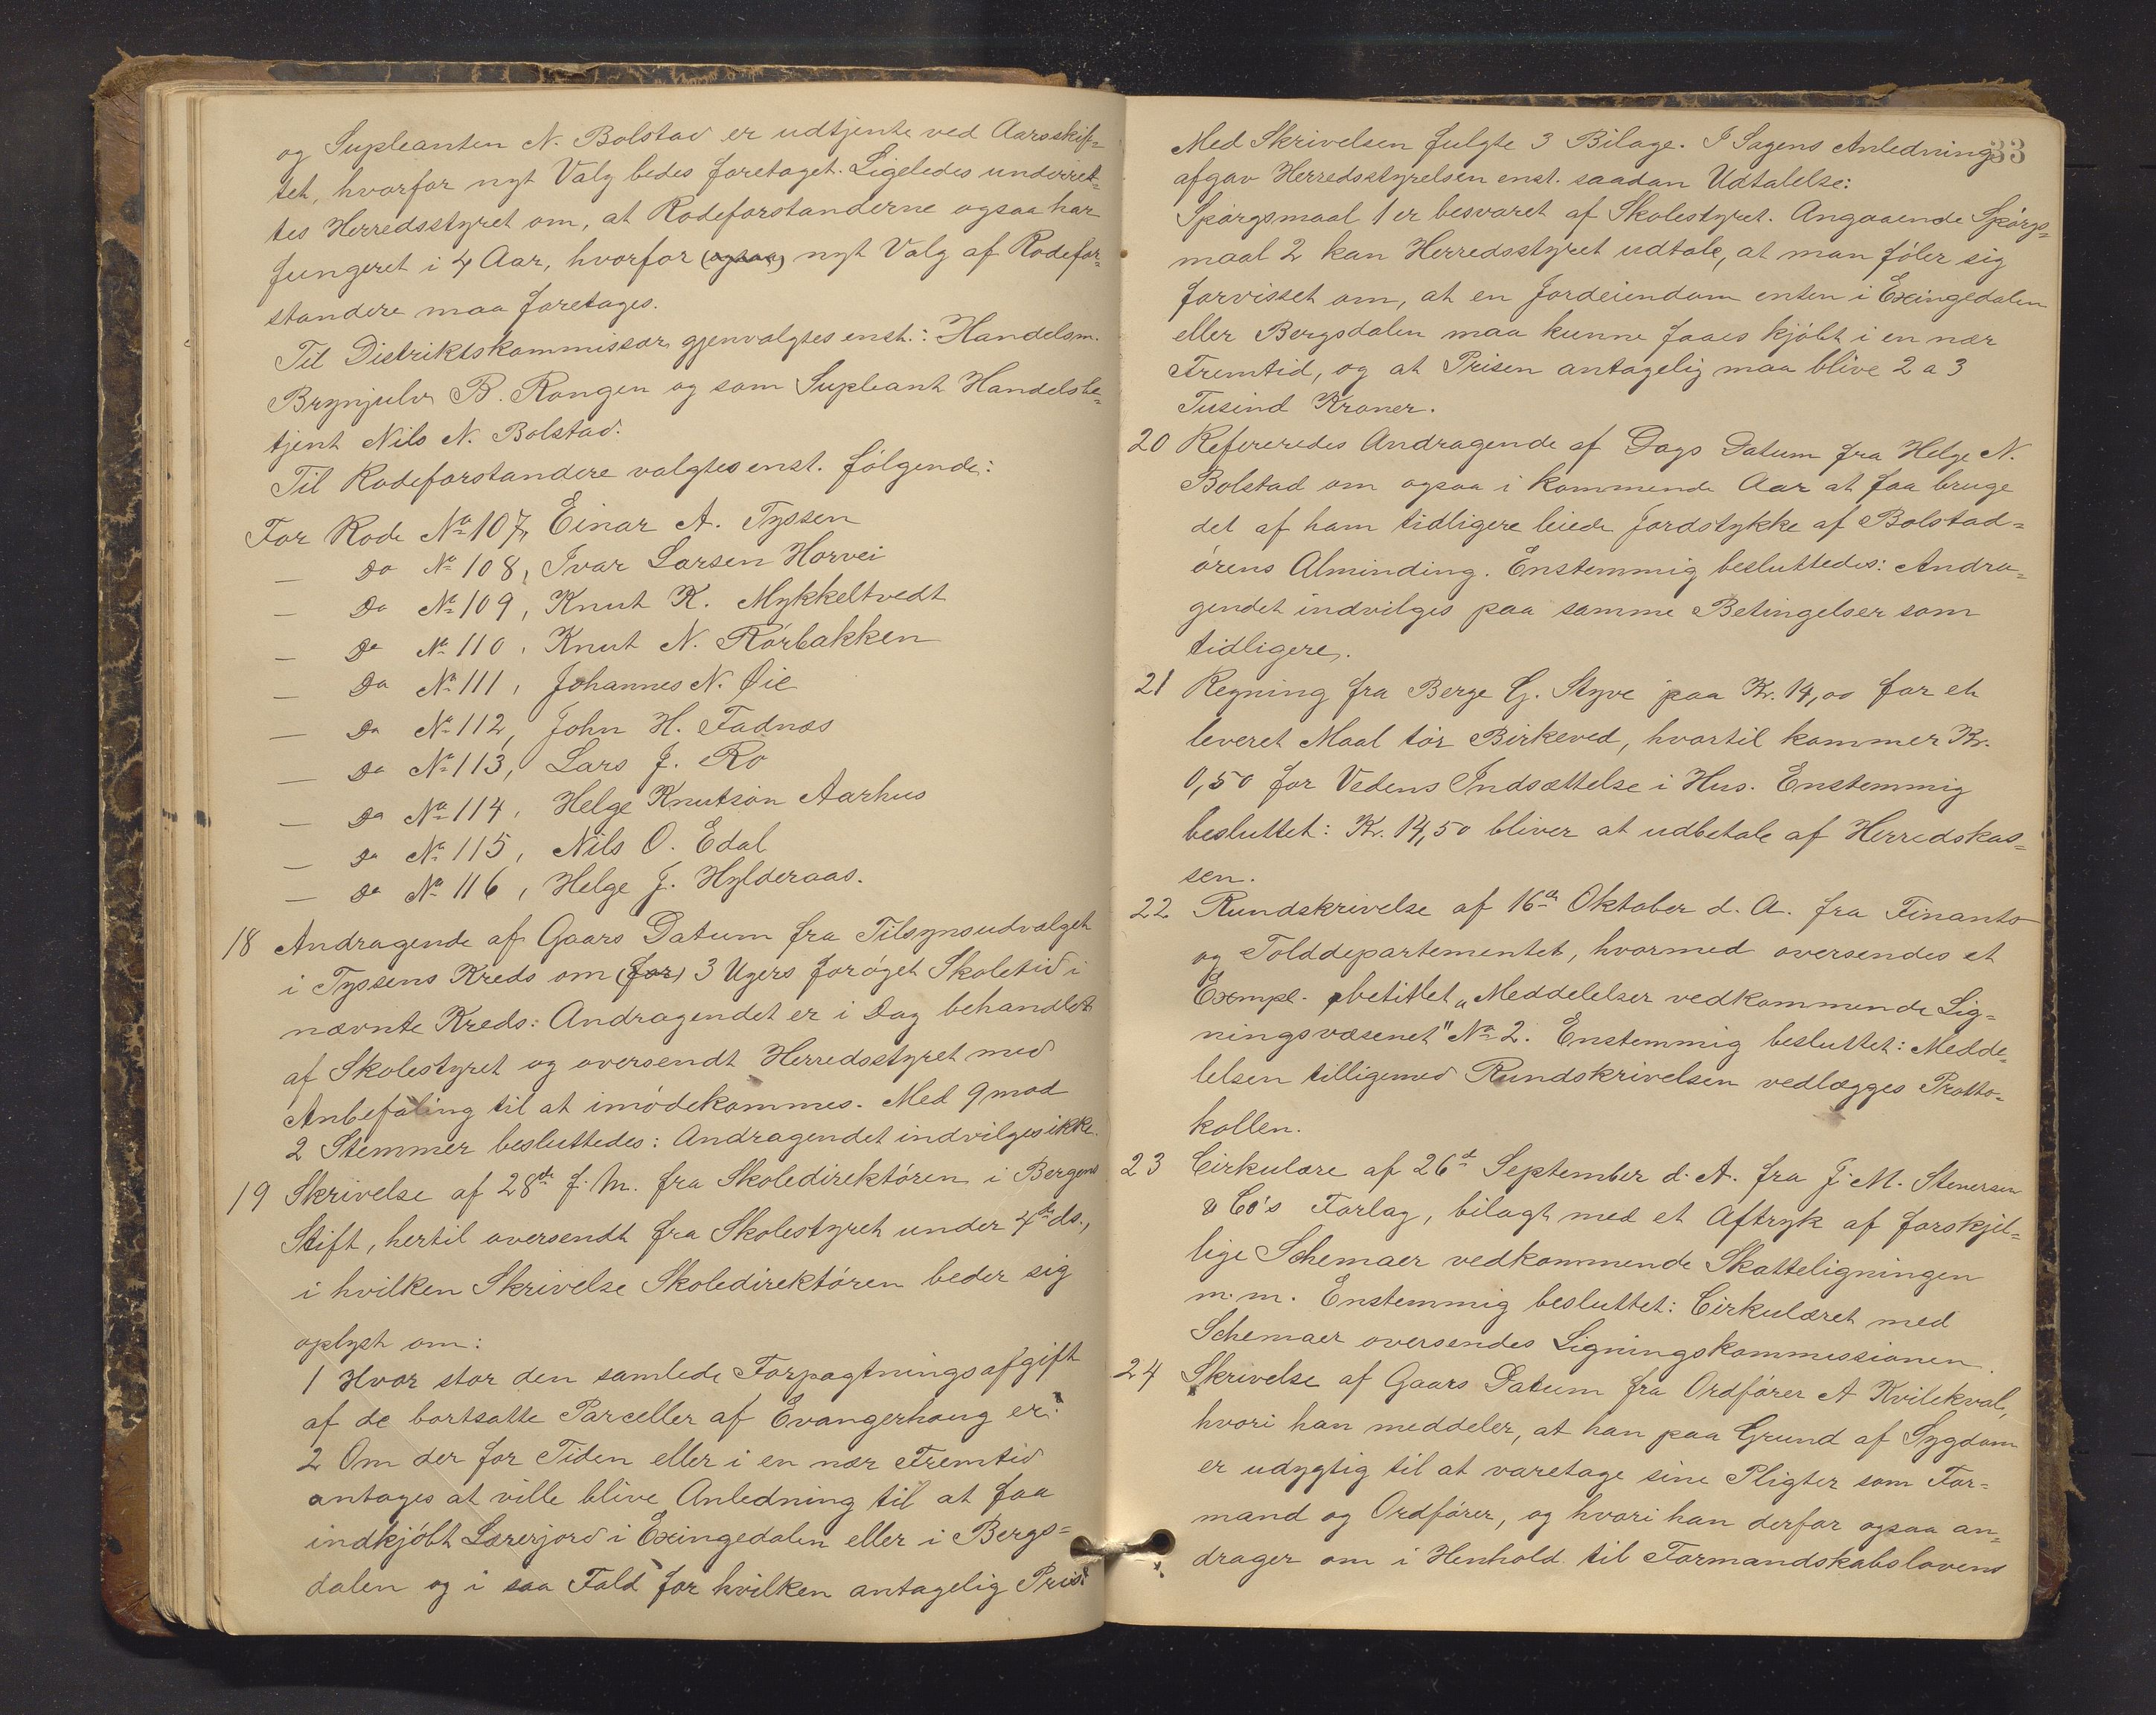 og Supleanten N. Bolstad er udtjente ved Aarsskif-
tet, hvorfor nyt Valg bedes foretaget. Ligeledes underret-
tes Herredsstyret om, at Rodeforstanderne ogsaa har
fungeret i 4 Aar, hvorfor (ogsaa) nyt Valg af Rodefor-
standere maa foretages.
Til Distriktskommissær gjenvalgtes enst.: Handelsm.
Brynjulv B. Rongen og som Supleant Handelsbe-
tjent Nils N. Bolstad.
Til Rodeforstandere valgtes enst. følgende:
For Rode No 107, Einar A. Tyssen
— Do No 108, Ivar Larsen Horvei
— Do No 109, Knut K. Mykkeltvedt
— Do No 110, Knut N. Rörbakken
— Do No 111, Johannes N. Øie
— Do No 112, John H. Fadnæs
— Do No 113, Lars J. Rö
— Do No 114, Helge Knutsön Aarhus
— Do No 115, Nils O. Edal
— Do No 116, Helge J. Hylderaas.
18 Andragende af Gaars Datum fra Tilsynsudvalget
i Tyssens Kreds om (for) 3 Ugers forøget Skoletid i
nævnte Kreds: Andragendet er i Dag behandlet
af Skolestyret og oversendt Herredsstyret med
Anbefaling til at imødekommes. Med 9 mod
2 Stemmer besluttedes: Andragendet indvilges ikke.
19 Skrivelse af 28de f. M. fra Skoledirektören i Bergens
Stift, hertil oversendt fra Skolestyret under 4de ds.,
i hvilken Skrivelse Skoledirektören beder sig
oplyst om:
1 Hvor stor den samlede Forpagtningsafgift
af de bortsatte Parceller af Evangerhaug er?
2 Om der for Tiden eller i en nær Fremtid
antages at ville blive Anledning til at faa
indkjöbt Lærerjord i Exingedalen eller i Bergs-
dalen og i saa Fald for hvilken antagelig Pris?
33
Med Skrivelsen fulgte 3 Bilage. I Sagens Anledning
afgav Herredsstyrelsen enst. saadan Udtalelse:
Spörgsmaal 1 er besvaret af Skolestyret. Angaaende Spörgs-
maal 2 kan Herredsstyret udtale, at man föler sig
forvisset om, at en Jordeiendom enten i Exingedalen
eller Bergsdalen maa kunne faaes kjöbt i en nær
Fremtid, og at Prisen antagelig maa blive 2 a 3
Tusind Kroner.
20 Refereredes Andragende af Dags Datum fra Helge N.
Bolstad om ogsaa i kommende Aar at faa bruge
det af ham tidligere leiede Jordstykke af Bolstad-
örens Alminding. Enstemmig besluttedes: Andra-
gendet indvilges paa samme Betingelser som
tidligere.
21 Regning fra Berge G. Styve paa Kr. 14,00 for et
leveret Maal tör Birkeved, hvortil kommer Kr.
0,50 for Vedens Indsættelse i Hus. Enstemmig
besluttet: Kr. 14,50 bliver at udbetale af Herredskas-
sen.
22 Rundskrivelse af 16de Oktober d. A. fra Finants-
og Tolddepartementet, hvormed oversendes et
Exempl. betitlet „Meddelelser vedkommende Lig-
ningsvæsenet" No 2. Enstemmig besluttet: Medde-
lelsen tilligemed Rundskrivelsen vedlægges Protto-
kollen.
23 Cirkulære af 26de September d. A. fra J. M. Stenersen
& Co's Forlag, bilagt med et Aftryk af forskjel-
lige Schemaer vedkommende Skatteligningen
m.m. Enstemmig besluttet: Cirkulæret med
Schemaer oversendes Ligningskommissionen.
24 Skrivelse af Gaars Datum fra Ordförer A Kvilekval,
hvori han meddeler, at han paa Grund af Sygdom
er udygtig til at varetage sine Pligter som For-
mand og Ordförer, og hvori han derfor ogsaa an-
drager om i Henhold til Formandskabslovens